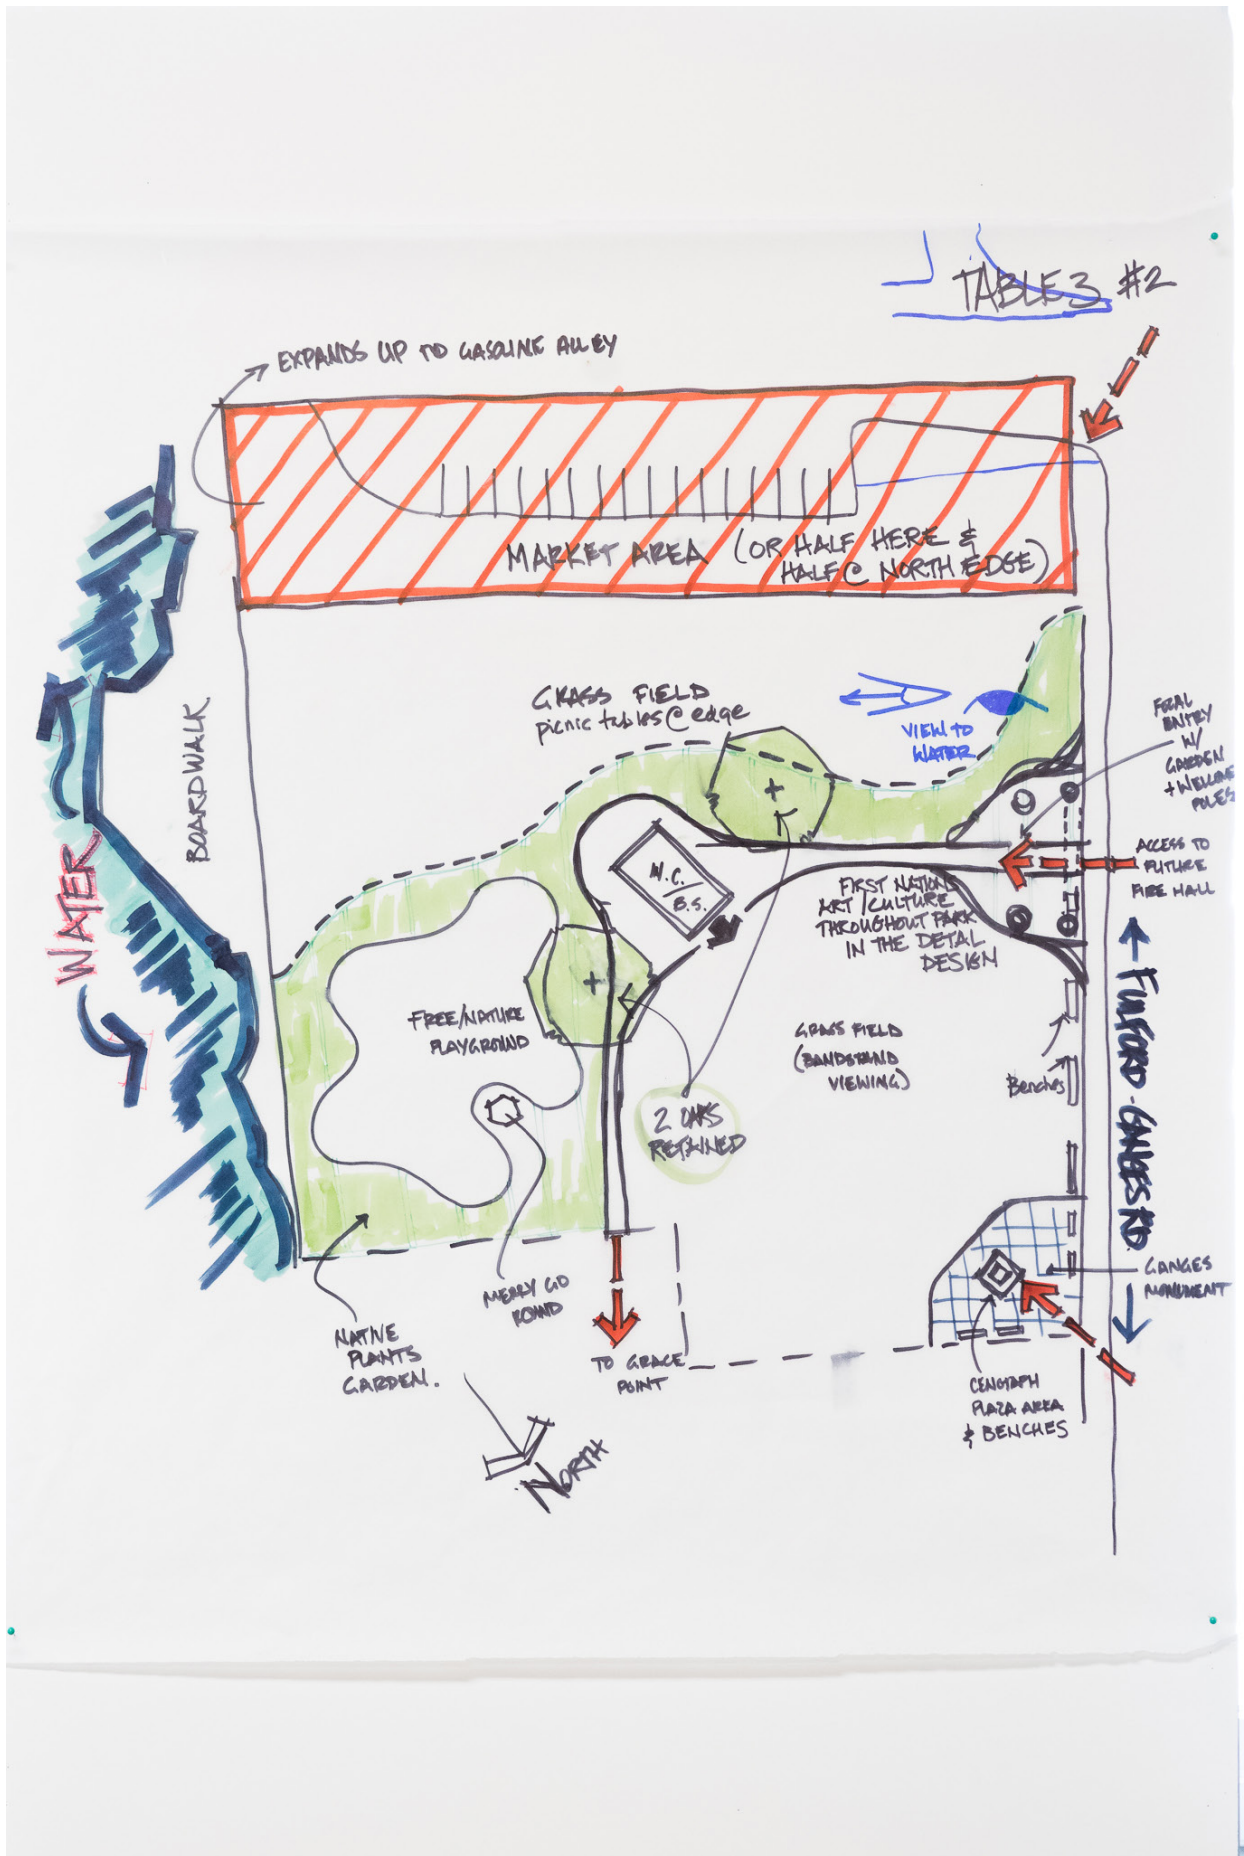 TABLE 3 #2
EXPANDS UP TO GASOLINE ALLEY
MARKET AREA (OR HALF HERE &
HALF @ NORTH EDGE)
GRASS FIELD
picnic tables @ edge
VIEW TO
WATER
FOCAL
ENTRY
W/
GARDEN
+ WELCOME
POLES
BOARDWALK
WATER
W.C.
B.S.
ACCESS TO
FUTURE
FIRE HALL
FIRST NATIONS
ART/CULTURE
THROUGHOUT PARK
IN THE DETAIL
DESIGN
FREE/NATURE
PLAYGROUND
GRASS FIELD
(BANDSTAND
VIEWING)
Benches
FULFORD-GANGES RD.
2 OAKS
RETAINED
GANGES
MONUMENT
MERRY GO
ROUND
NATIVE
PLANTS
GARDEN.
TO GRACE
POINT
CENOTAPH
PLAZA AREA
& BENCHES
NORTH